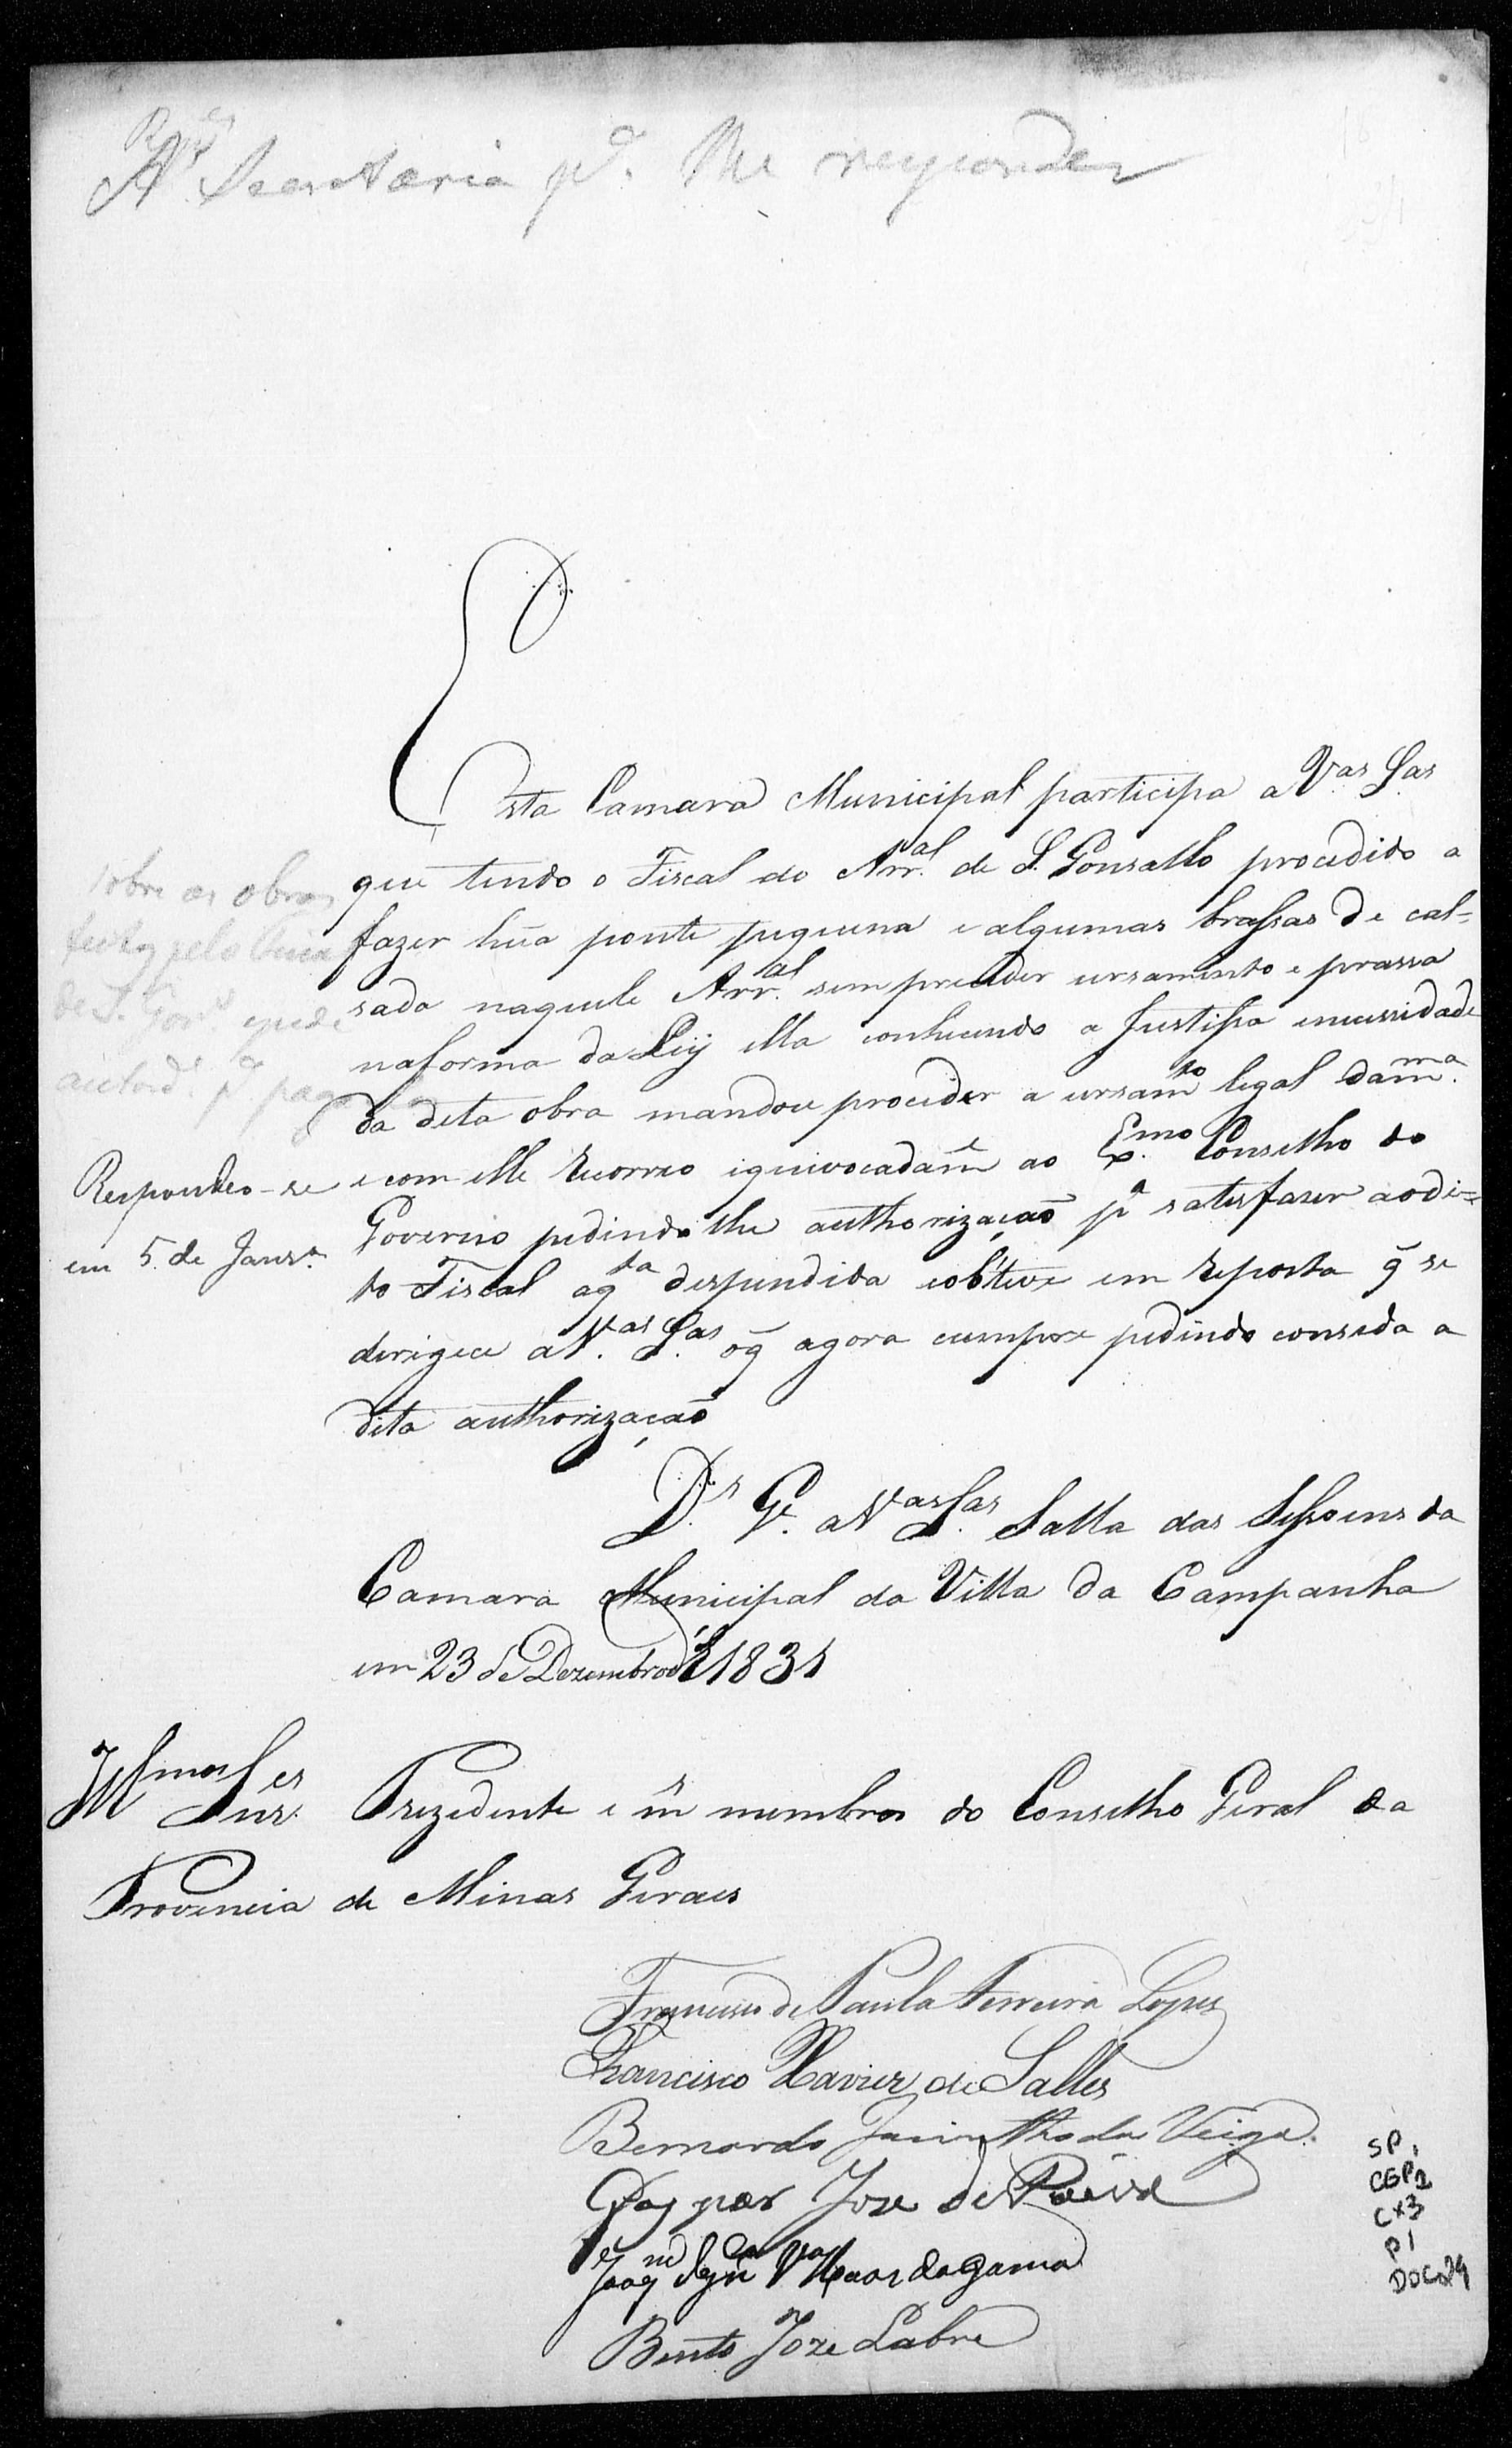 A' Secretaria pª. lhe responder
Esta Camara Municipal participa a V.as S.as
que tendo o Fiscal do Arr.al de S. Gonsallo procedido a
fazer hũa ponte piquena e algumas brassas de cal=
sada naquele Arr.al sem preceder orsamento e prassa
na forma da Ley ella conhecendo a Justissa e necessidade
da dita obra mandou proceder a orsam.to legal da m.ma
e com elle recorreo iquivocadam.e ao Ex.mo Conselho do
Governo pedindo lhe authorizaçaõ p.a satesfazer ao di=
to Fiscal a q.ta despendida e obteve em reposta q̃ se
dirigece a V.as S.as o q̃ agora cumpre pedindo conseda a
dita authorizaçaõ
D.s G.e a V.as S.as Salla das Sessoens da
Camara Municipal da Villa da Campanha
em 23 de Dezembro de 1831
sobre as obras
feitas pelo
de S. Gon.lo e pede
autord.e pª. pag
Respondeo-se
em 5 de Janr.o
Ill.mos Snr.es Prezidente e m membros do Conselho Geral da
Provincia de Minas Geraes
Francisco de Paula Ferreira Lopes
Francisco Xavier de Salles
Bernardo Jacintho da Veiga
Gaspar Joze de Paiva
Joaq.m Ign.co V.as Boas da Gama
Bento Joze Labre
SP
CGP1
CX3
P1
DOC24